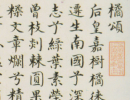 橘頌
后皇嘉樹橘徠
遷生南國兮深
志兮綠葉素榮
曾枝剡棘圓果
糅文章爛兮精